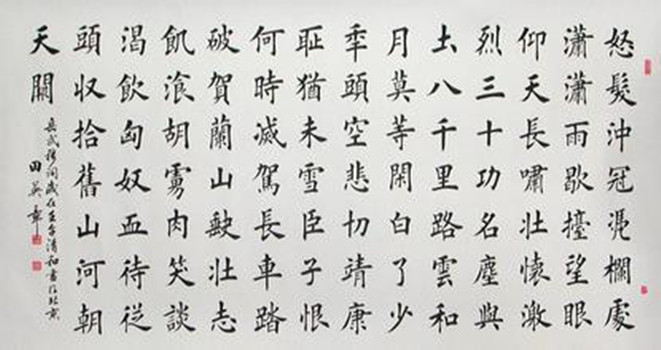 怒髮沖冠凴欄處
瀟瀟雨歇擡望眼
仰天長嘯壯懷激
烈三十功名塵與
圡八千里路雲和
月莫等閑白了少
秊頭空悲切靖康
耻猶未雪臣子恨
何時滅駕長車踏
破賀蘭山缺壯志
飢飡胡虜肉笑談
渴飲匈奴血待從
頭收拾舊山河朝
天闕
岳武穆詞歲在清和書於北京
田英章